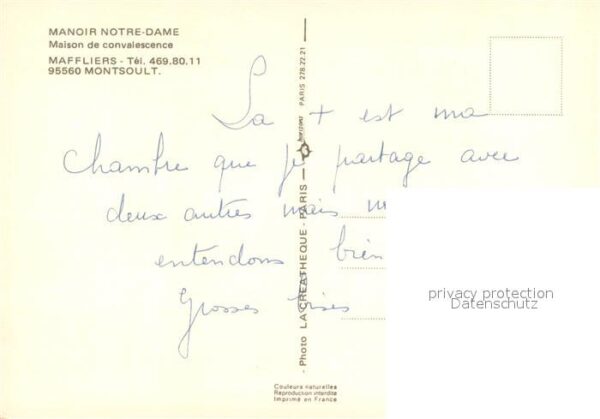 MANOIR NOTRE-DAME
Maison de convalescence
MAFFLIERS - Tél. 469.80.11
95560 MONTSOULT.
La + est ma
chambre que je partage avec
deux autres mais
entendons bien
Grosses bises
- Photo LA CRÉATHEQUE - PARIS -
PARIS 278.22.21
Couleurs naturelles
Reproduction interdite
Imprimé en France
privacy protection
Datenschutz